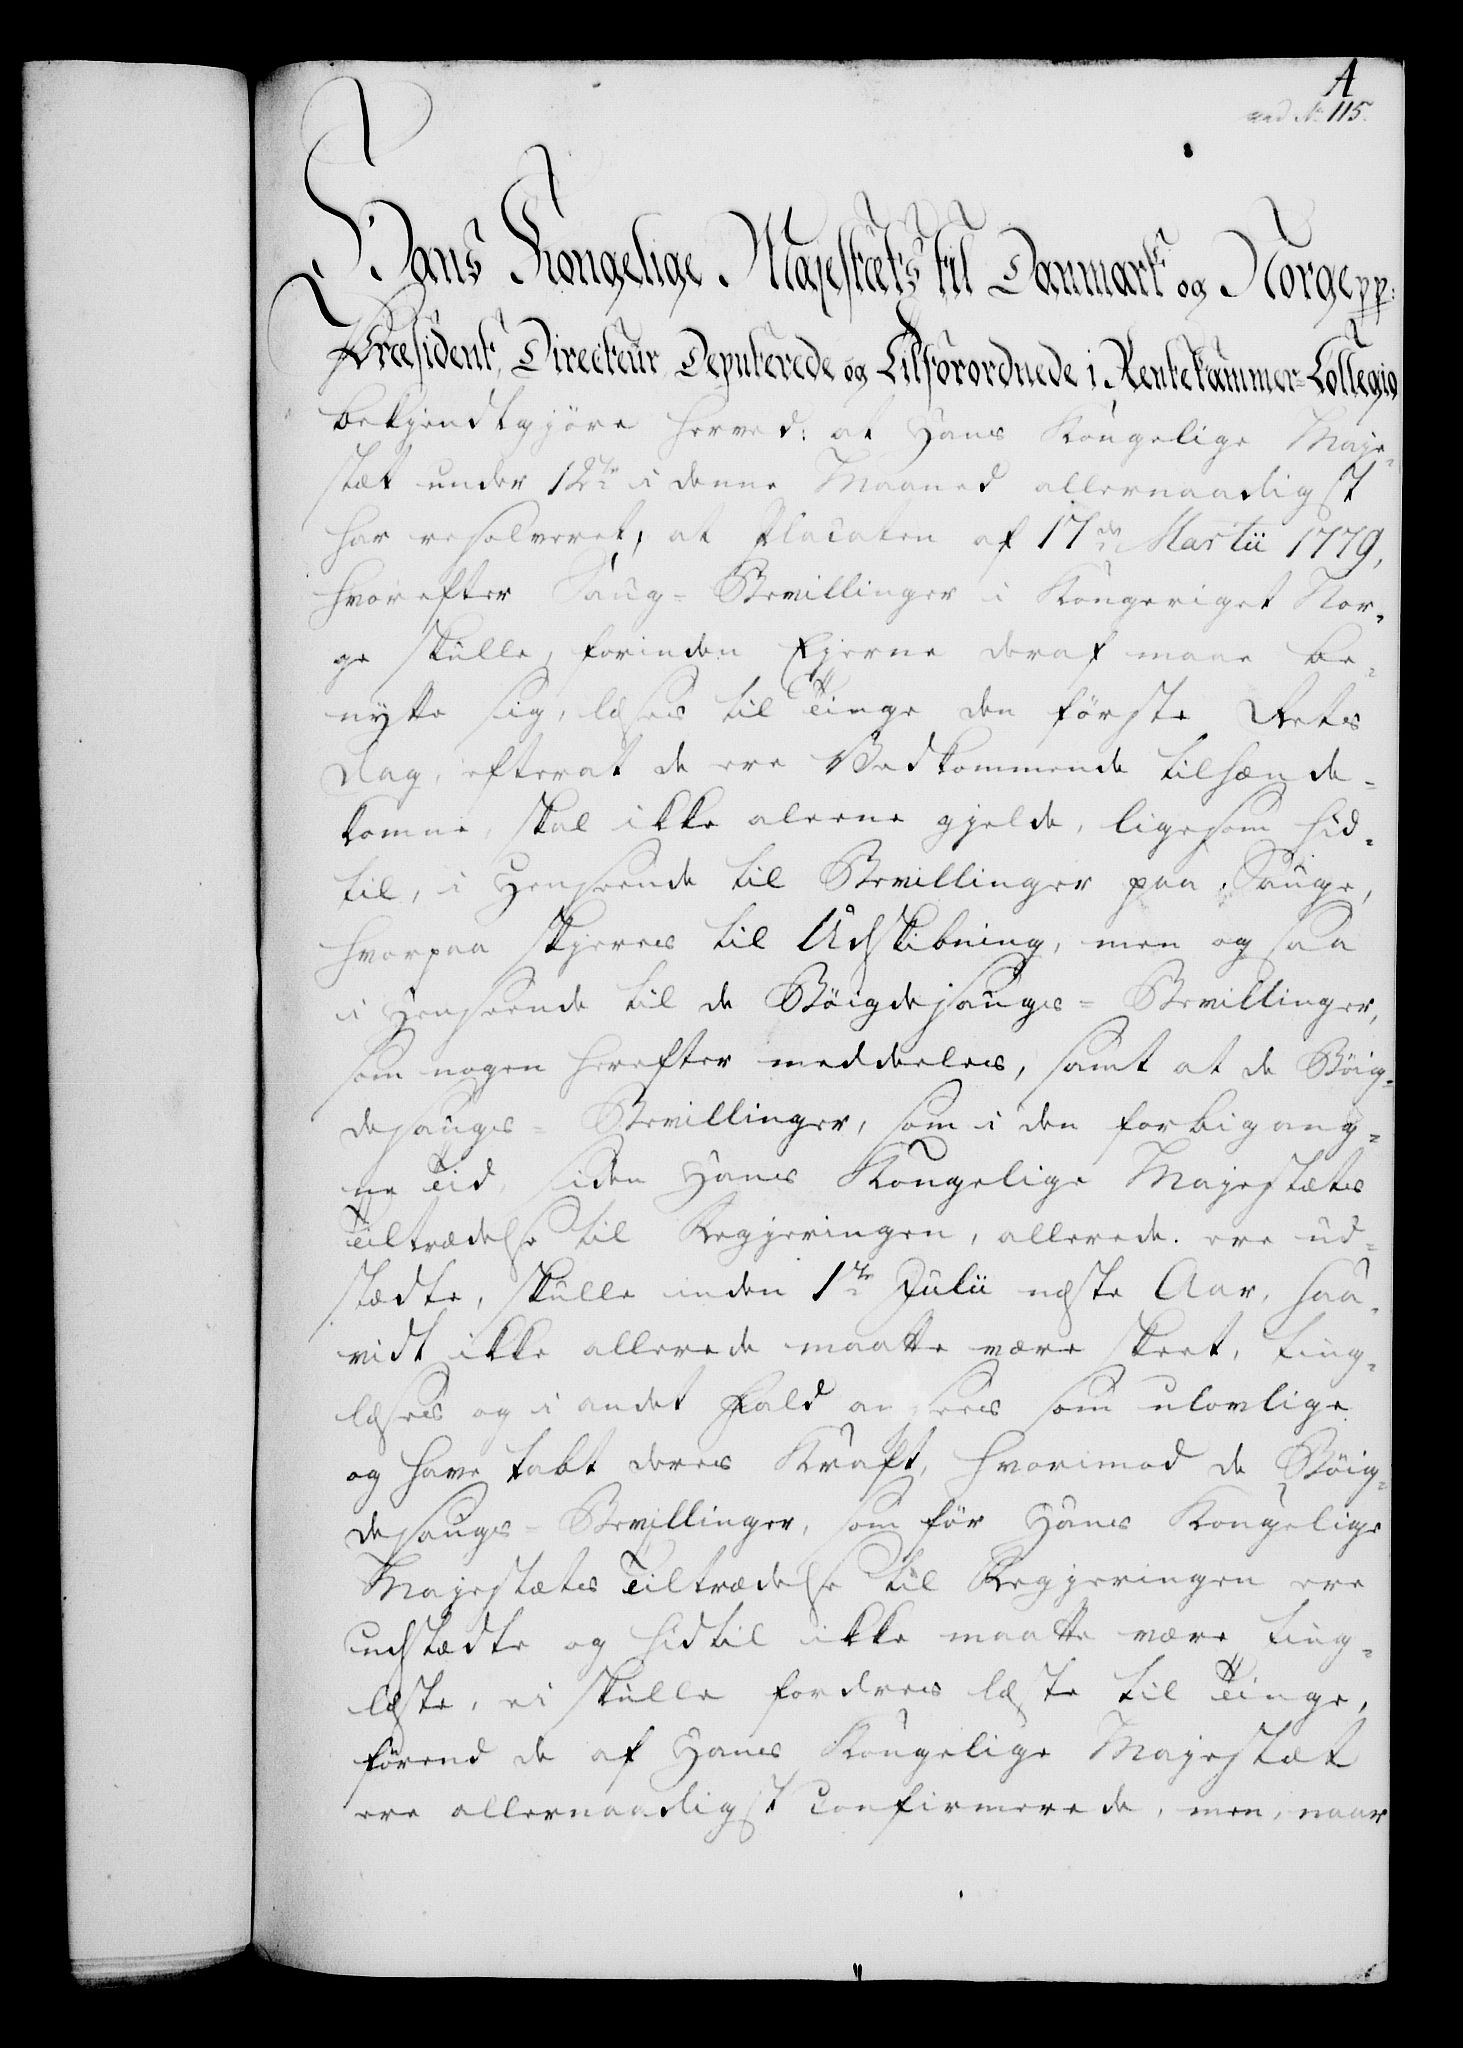 A
ved No 115.
Hans Kongelige Majestæts til Danmark og Norge pp:
Præsident, Directeur Deputerede og Tilforordnede i Rentekammer-Collegio
bekjendtgjøre herved: at Hans Kongelige Maje-
stæt under 12te i denne Maaned allernaadigst
har resolveret, at Placaten af 17de Martii 1779,
hvorefter Saug-Bevillinger i Kongeriget Nor-
ge skulle, forinden Ejerne deraf maae be-
nytte sig, læses til Tinge den første Rets
Dag, efterat de ere Vedkommende tilhænde-
komne, skal ikke aleene gjelde, ligesom hid-
til, i Henseende til Bevillinger paa Sauge,
hvorpaa skjeres til Udskibning, men og saa
i Henseende til de Böigdesaugs-Bevillinger,
som nogen herefter meddeeles, samt at de Böig-
desaugs-Bevillinger, som i den forbigang-
ne Tid, siden Hans Kongelige Majestæts
Tiltrædelse til Regjeringen, allerede ere ud-
stædte, skulle inden 1te Julii næste Aar, saa-
vidt ikke allerede maatte være skeet, ting-
læses og i andet Fald ansees som ulovlige
og have tabt deres Kraft, hvorimod de Böig-
desaugs-Bevillinger, som før Hans Kongelige
Majestæts Tiltrædelse til Regjeringen ere
udstædte og hidtil ikke maatte være ting-
læste, ei skulle fordres læste til Tinge,
førend de af Hans Kongelige Majestæt
ere allernaadigst Confirmerede, men, naar